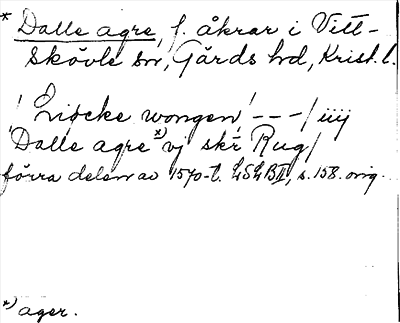 * Dalle agre, f. åkrar i Vitt-
skövle sn, Gärds hd, Krist. l.
! Liocke wongen! - - - / iiij
"Dalle agre *) vj skr̄ Rug/
förra delen av 1570-t. LSLB II, s. 158. orig.
*) ager.